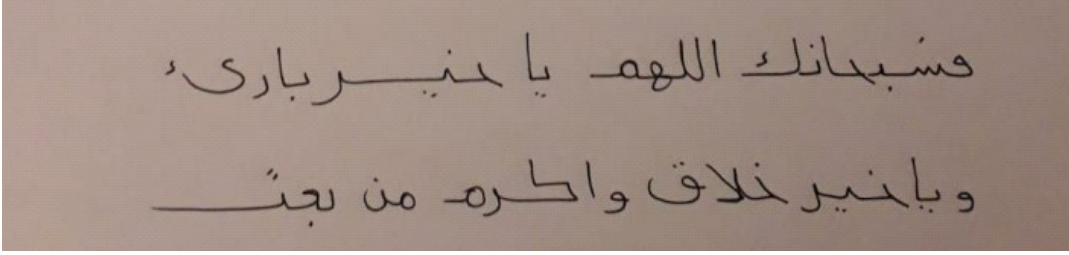 فسبحانك اللهم يا خير بارئ
ويا خير خلاق واكرم من بعث